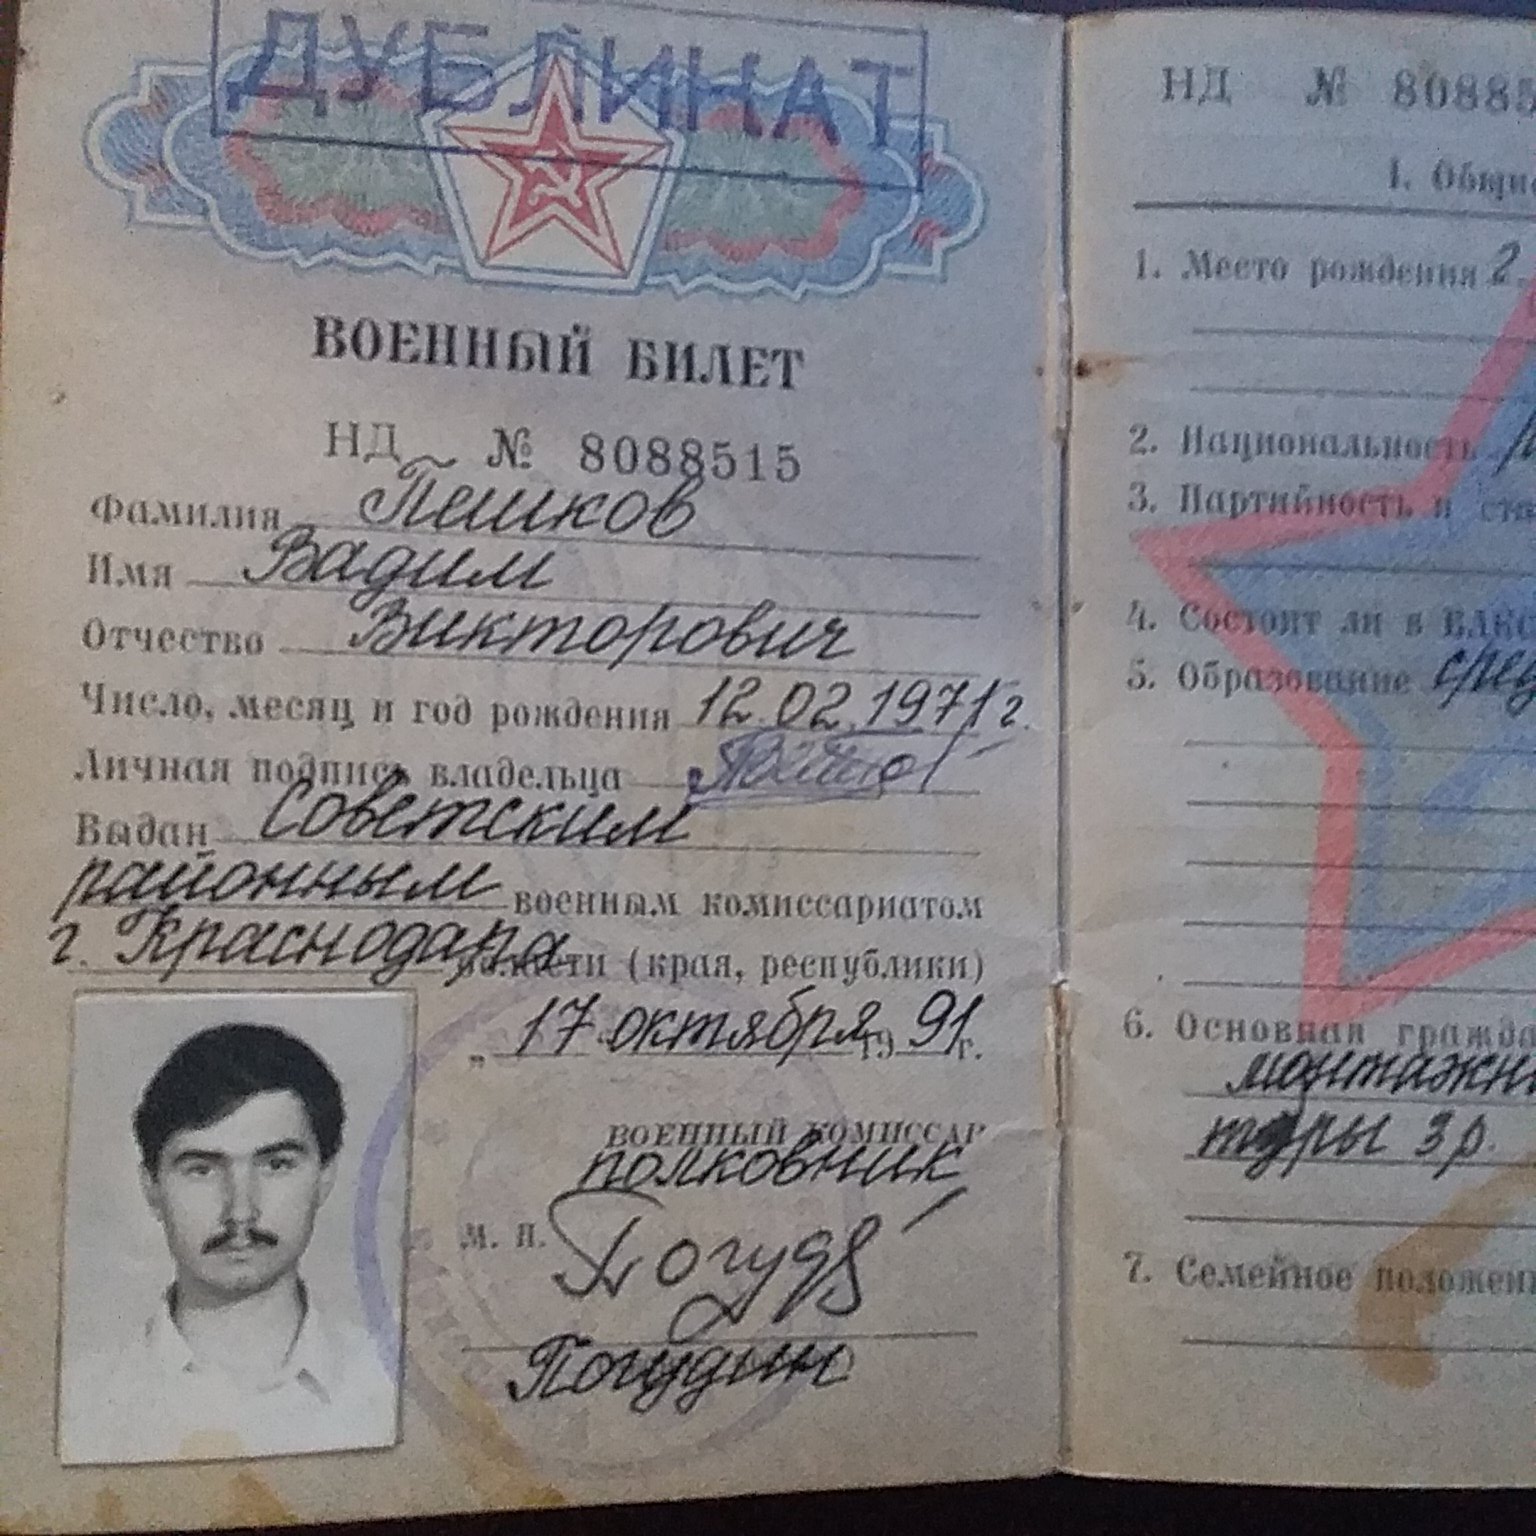 ДУБЛИКАТ
ВОЕННЫЙ БИЛЕТ
НД № 8088515
Фамилия Пешков
Имя Вадим
Отчество Викторович
Число, месяц и год рождения 12.02.1971 г.
Личная подпись владельца
Выдан Советским
районным военным комиссариатом
г. Краснодара области (края, республики)
„ 17 октября 19 91 г.
ВОЕННЫЙ КОМИССАР
полковник
М. П.
Погудин
НД № 8088
1. Общи
1. Место рождения г.
2. Национальность
3. Партийность и ста
4. Состоит ли в ВЛКС
5. Образование сред
6. Основная гражда
монтажни
туры 3 р.
7. Семейное положени